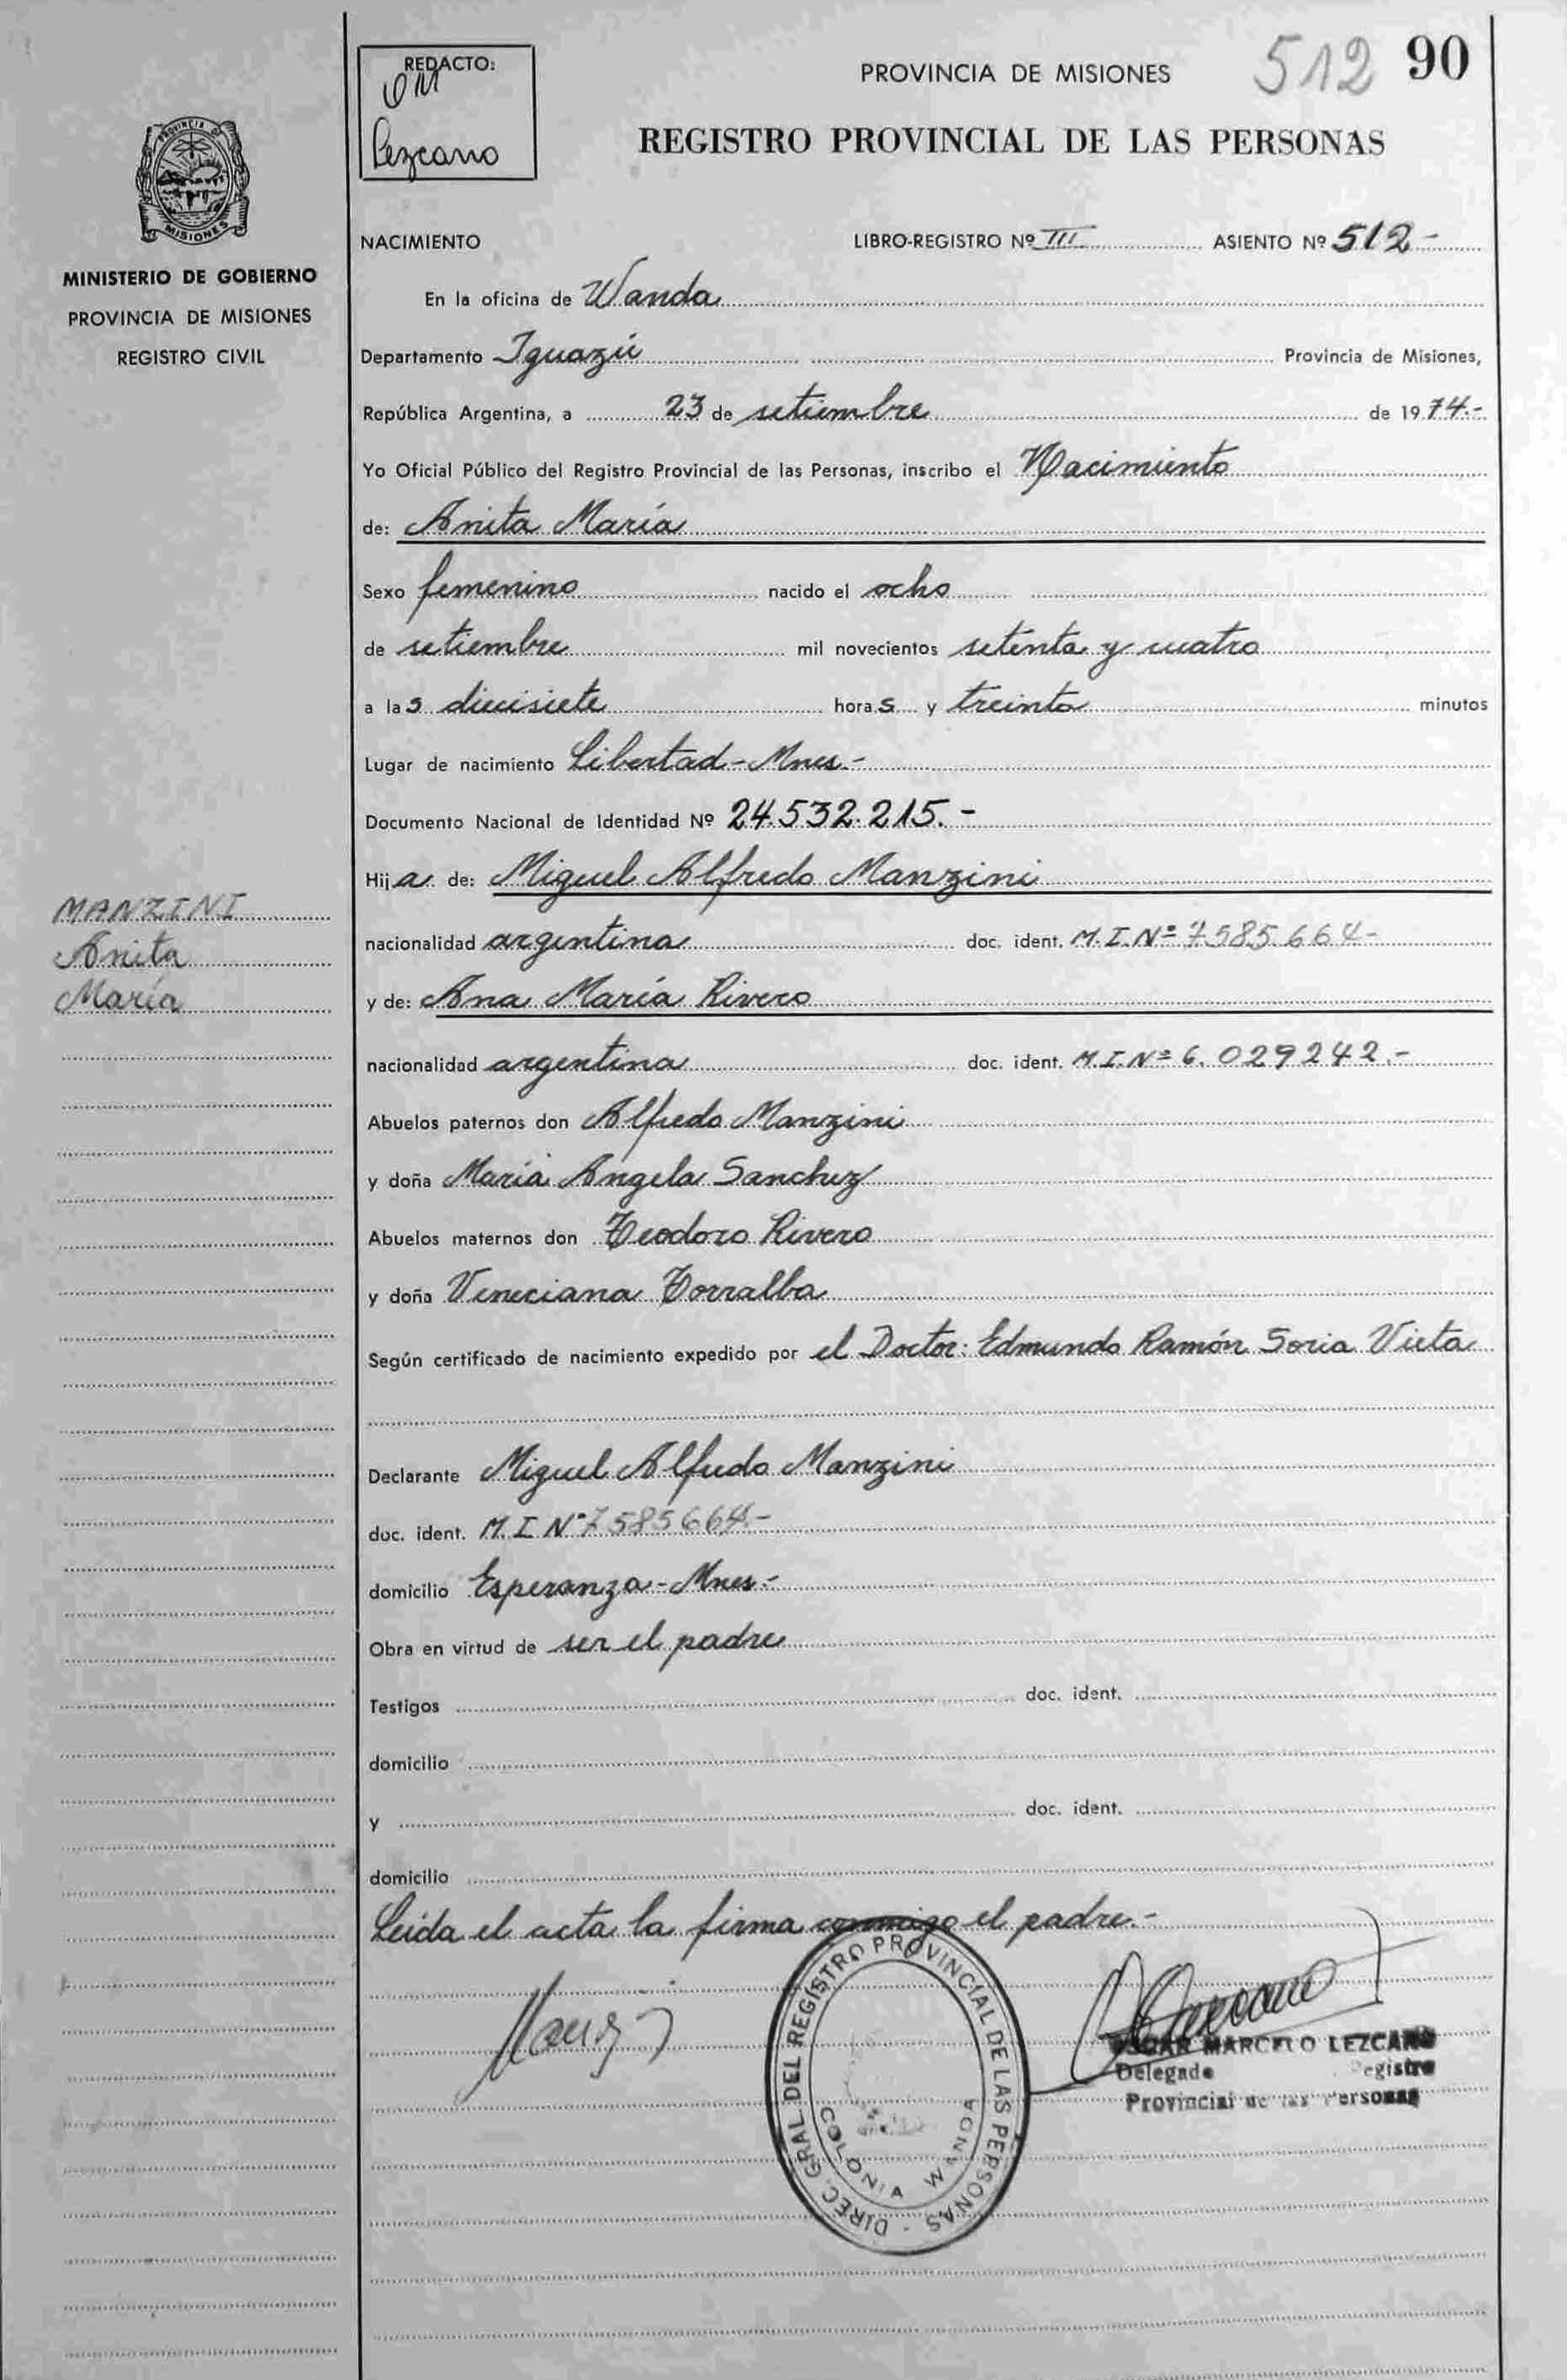 REDACTO:
OM
Lezcano
PROVINCIA DE MISIONES
512 90
REGISTRO PROVINCIAL DE LAS PERSONAS
PROVINCIA DE
MISIONES
MINISTERIO DE GOBIERNO
PROVINCIA DE MISIONES
REGISTRO CIVIL
NACIMIENTO LIBRO-REGISTRO Nº III ASIENTO Nº 512-
En la oficina de Wanda
Departamento Iguazú Provincia de Misiones,
República Argentina, a 23 de setiembre de 1974.-
Yo Oficial Público del Registro Provincial de las Personas, inscribo el Nacimiento
de: Anita María
Sexo femenino nacido el ocho
de setiembre mil novecientos setenta y cuatro
a las diecisiete horas y treinta minutos
Lugar de nacimiento Libertad-Mnes.-
Documento Nacional de Identidad Nº 24.532.215.-
Hija de: Miguel Alfredo Manzini
MANZINI
Anita
María
nacionalidad argentina doc. ident. M.I.Nº 7585664-
y de: Ana María Rivero
nacionalidad argentina doc. ident. M.I.Nº 6.029242.-
Abuelos paternos don Alfredo Manzini
y doña María Angela Sanchez
Abuelos maternos don Teodoro Rivero
y doña Veneciana Torralba
Según certificado de nacimiento expedido por el Doctor: Edmundo Ramón Soria Vieta
Declarante Miguel Alfredo Manzini
doc. ident. M.I Nº 7585664.-
domicilio Esperanza-Mnes.-
Obra en virtud de ser el padre
Testigos doc. ident.
domicilio
y doc. ident.
domicilio
Leída el acta la firma conmigo el padre.-
DIREC. GRAL DEL REGISTRO PROVINCIAL DE LAS PERSONAS -
COLONIA WANDA
OSCAR MARCELO LEZCANO
Delegado Registro
Provincial de las Personas